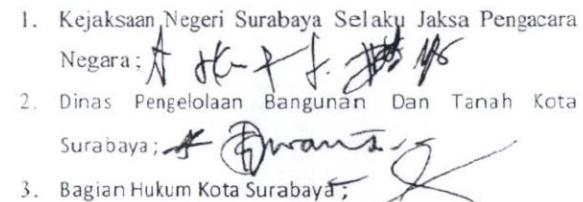 1. Kejaksaan Negeri Surabaya Selaku Jaksa Pengacara
Negara;
2. Dinas Pengelolaan Bangunan Dan Tanah Kota
Surabaya;
3. Bagian Hukum Kota Surabaya;